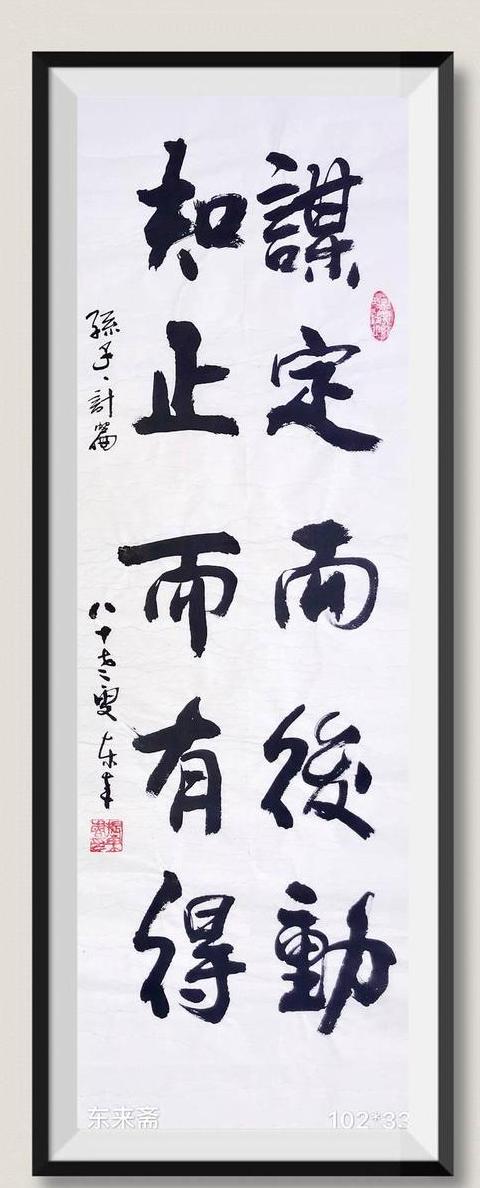 謀定而後動
知止而有得
孫子、計篇
八十老叟东来
东来斋
102*33